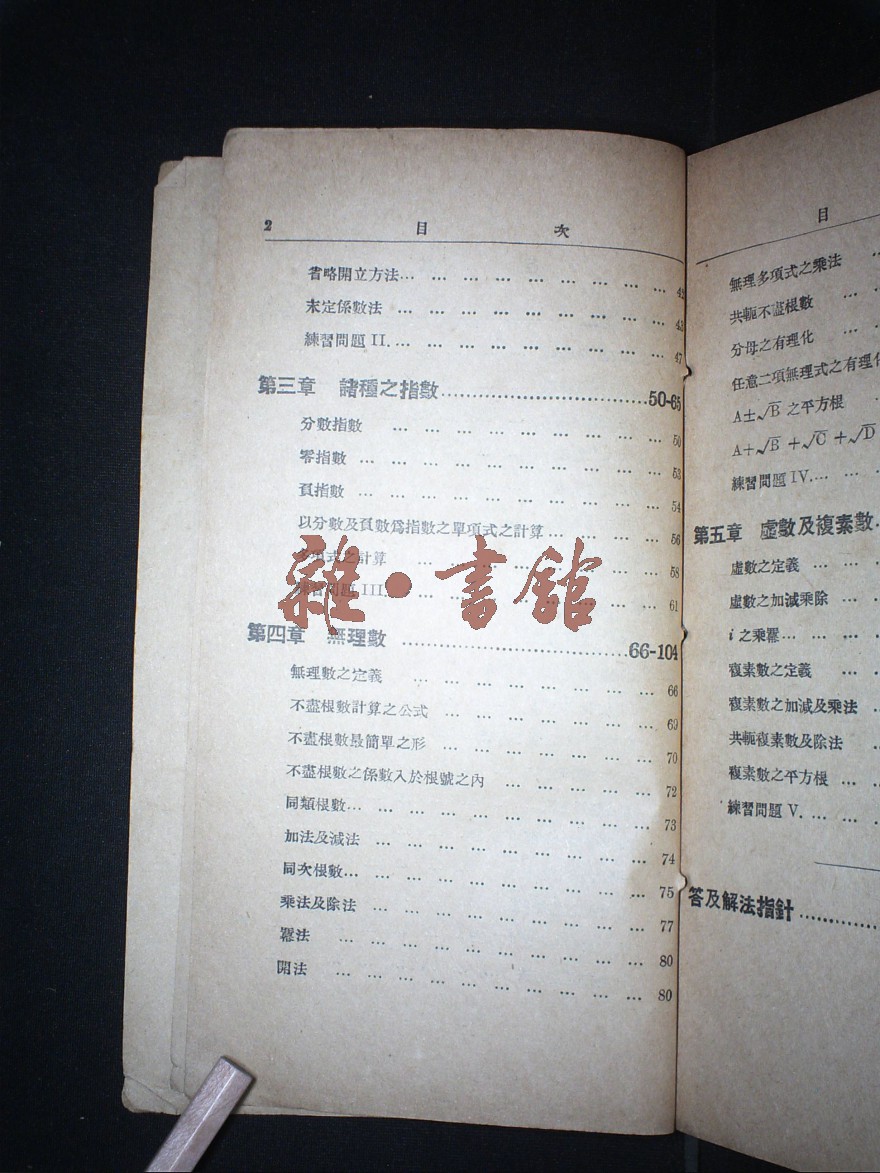 2 目 次
省略開立方法… … … … … … … … … 42
末定係數法 … … … … … … … … … 43
練習問題 II. … … … … … … … … … 47
第三章 諸種之指數……………………………50-65
分數指數 … … … … … … … … … 50
零指數 … … … … … … … … … … 53
負指數 … … … … … … … … … … 54
以分數及負數爲指數之單項式之計算 … … … … 56
多項式之計算 … … … … … … … … 58
練習問題 III. … … … … … … … … 61
第四章 無理數 ……………………………66-104
無理數之定義 … … … … … … … … 66
不盡根數計算之公式 … … … … … … … 69
不盡根數最簡單之形 … … … … … … … 70
不盡根數之係數入於根號之內 … … … … … 72
同類根數… … … … … … … … … … 73
加法及減法 … … … … … … … … … 74
同次根數… … … … … … … … … … 75
乘法及除法 … … … … … … … … … 77
羃法 … … … … … … … … … … 80
開法 … … … … … … … … … … 80
目
無理多項式之乘法 …
共軛不盡根數 … …
分母之有理化 …
任意二項無理式之有理化
A±√B 之平方根 …
A+√B+√C+√D
練習問題 IV.… … …
第五章 虛數及複素數…
虛數之定義 … … …
虛數之加減乘除 … …
i 之乘羃… … … …
複素數之定義 … …
複素數之加減及乘法 …
共軛複素數及除法 …
複素數之平方根 … …
練習問題 V. … … …
答及解法指針…………
雜·書館